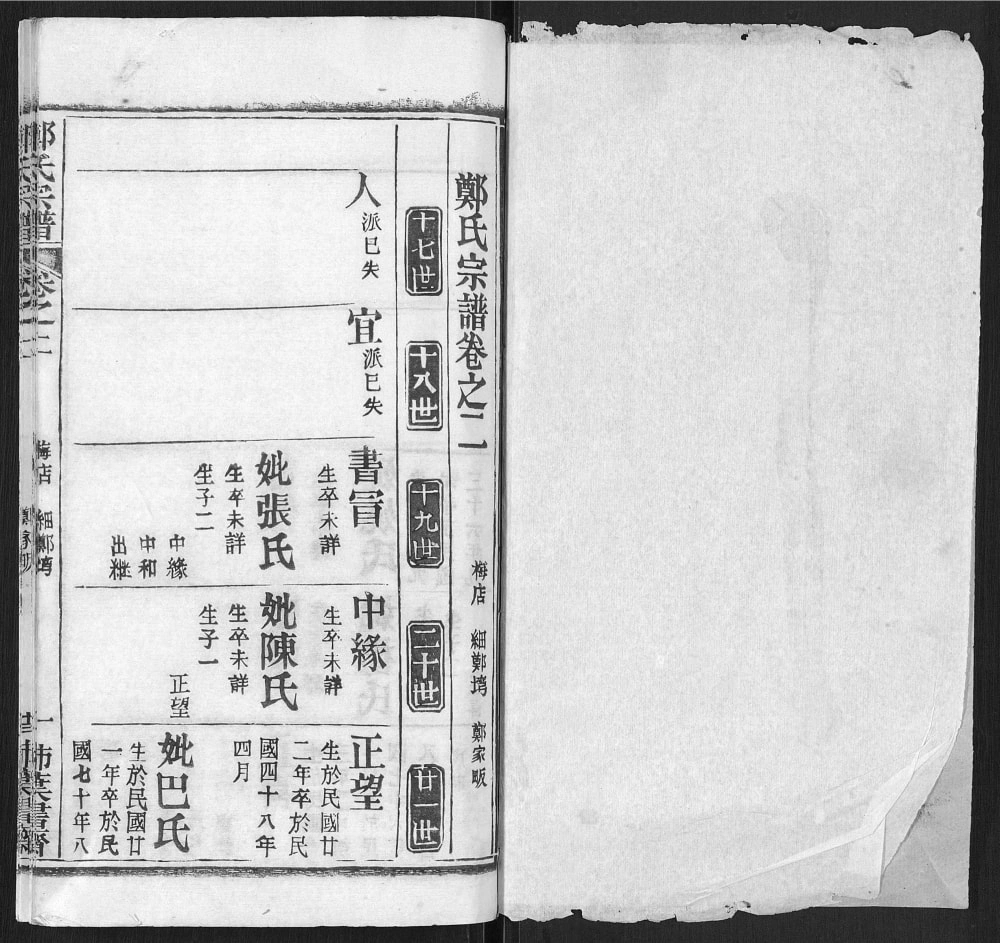 鄭氏宗譜卷之二
梅店 細鄭塆 鄭家畈
十七世
十八世
十九世
二十世
廿一世
人
派已失
宜
派已失
書
生卒未詳
妣張氏
生卒未詳
生子二
中緣
中和
出繼
中緣
生卒未詳
妣陳氏
生卒未詳
生子一
正望
正望
生於民國廿
二年卒於民
國四十八年
四月
妣巴氏
生於民國廿
一年卒於民
國七十年八
鄭氏宗譜
卷之二
梅店 細鄭塆
一